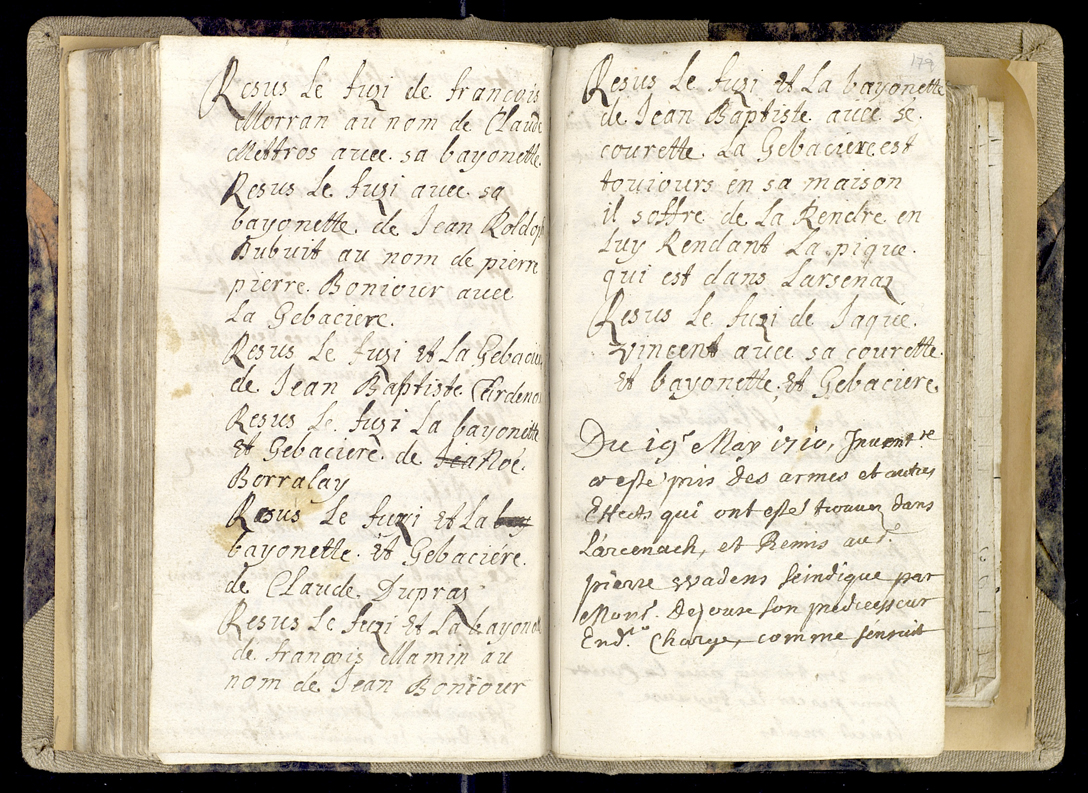 Resus Le fuzi de francois
Morran au nom de Claude
Mettros avec sa bayonette.
Resus Le fuzi avec sa
bayonette. de Jean
Bubuit au nom de pierre
pierre. Boniour avec
La Gebaciere.
Resus Le fuzi Et La Gebaciere
de Jean Baptiste
Resus Le. fuzi La bayonette
Et Gebaciere. de Noé.
Borralay
Resus Le fuzi et La
bayonette. et Gebaciere.
de Claude. Dupras
Resus Le fuzi Et La bayonet
de. françois Mamin au
nom de Jean Boniour
179
Resus Le fuzi Et La bayonette
de Jean Baptiste. avec se.
courette. La Gebaciere est
touiours en sa maison
il soffre de La Rendre en
Luy Rendant La pique.
qui est dans Larsenaz
Resus Le. fuzi de Jaque.
vincent avec sa courette.
Et bayonette. Et Gebaciere.
Du 19e May 1710, Inventre
a esté pris des armes et autres
Effects qui ont esté trouvez dans
L'arcenach, et Remis au Sr.
pierre Wadens Seindique par
Monsr. Dejoux son predicesseur
End.te Charge, comme sensuit